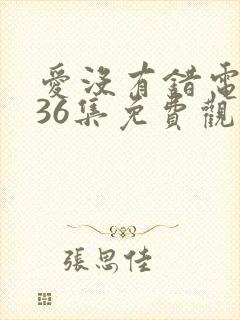 愛沒有錯電
36集免費觀
張思佳